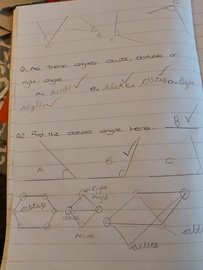 Q. Are these angles acute, obtuse or
right-angle
A= Acute B= Acute C= obtuse D= Right
Angle
Q2. Find the obtuse angle here. B
A B C
Right
Angle
obtuse
obtuse
Acute
Acute